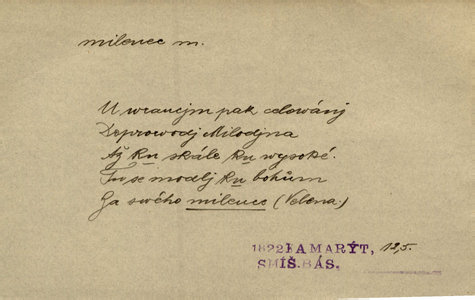 milenec m.
U wraucým pak celowánj
Doprowodj Milodjna
Až ku skále ku wysoké.
Tu se modlj ku bohům
Ga swého milence (Velena.)
1822 KAMARÝT, 125.
SMÍŠ. BÁS.